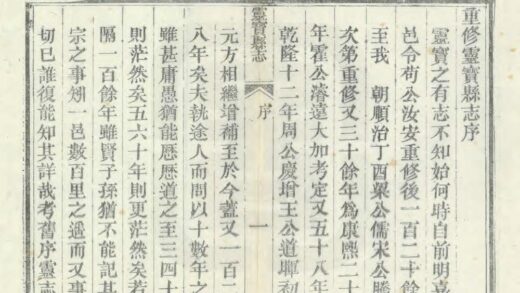 重修靈寶縣志序
靈寶之有志不知始何時自前明嘉
邑令苟公汝安重修後一百二十餘
至我 朝順治丁酉梁公儒宋公騰
次第重修又三十餘年爲康熙二十
年霍公濬遠大加考定又五十八年
乾隆十二年周公慶增王公道暉初
靈寶縣志 序 一
元方相繼增補至於今蓋又一百二
八年矣夫執途人而問以十數年之
雖甚庸愚猶能厯厯道之至三四十
則茫然矣五六十年則更茫然矣若
隔一百餘年雖賢子孫猶不能記其
宗之事矧一邑數百里之遙而又事
切巳誰復能知其詳哉考舊序靈志